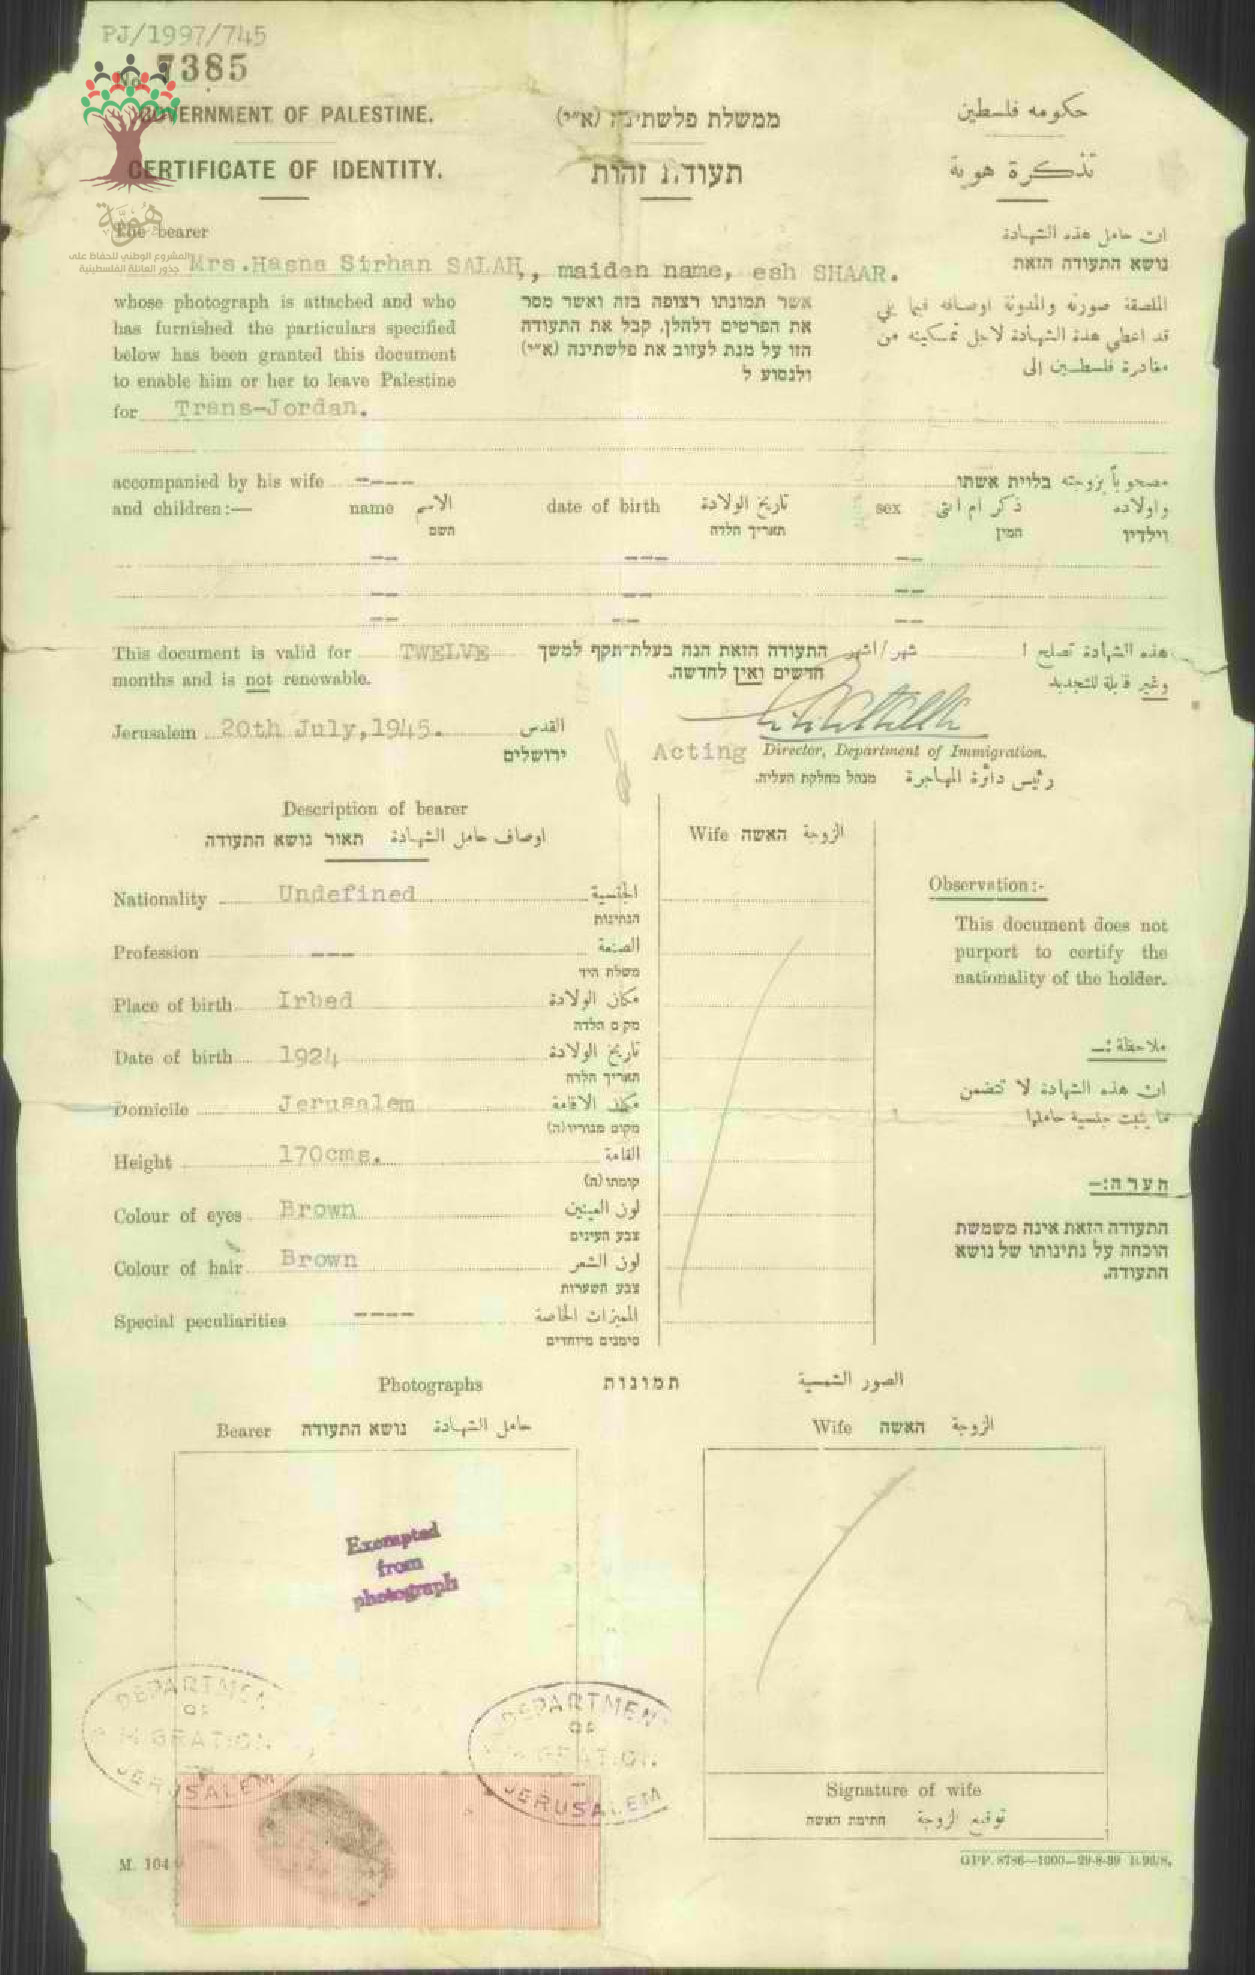 PJ/1997/745
No. 7385
GOVERNMENT OF PALESTINE. ממשלת פלשתינה (א״י) حكومه فلسطين
CERTIFICATE OF IDENTITY. תעודת זהות تذكرة هوية
هُويَّة
المشروع الوطني للحفاظ على
جذور العائلة الفلسطينية
The bearer ان حامل هذه الشهادة
נושא התעודה הזאת
Mrs.Hasna Sirhan SALAH,, maiden name, esh SHAAR.
whose photograph is attached and who אשר תמונתו רצופה בזה ואשר מסר الملصقة صورته والمدونة اوصافه فيما يلي
has furnished the particulars specified את הפרטים דלהלן, קבל את התעודה قد اعطي هذة الشهادة لاجل تمكينه من
below has been granted this document הזו על מנת לעזוב את פלשתינה (א״י) مغادرة فلسطين إلى
to enable him or her to leave Palestine ולנסוע ל
for Trans-Jordan.
accompanied by his wife ----- בלוית אשתו مصحوباً بزوجته
and children:— name الاسم date of birth تاريخ الولادة sex ذكر ام انثى واولاده
השם תאריך הלדה המין וילדיו
-- --- --
-- -- --
-- -- --
This document is valid for TWELVE התעודה הזאת הנה בעלת־תקף למשך شهر/اشهر هذه الشهادة تصلح ا
months and is not renewable. חדשים ואין לחדשה. وغير قابلة للتجديد
Jerusalem 20th July,1945. القدس
ירושלים
Acting Director, Department of Immigration.
מנהל מחלקת העליה. رئيس دائرة المهاجرة
Description of bearer
תאור נושא התעודה اوصاف حامل الشهادة
Wife האשה الزوجة
Nationality Undefined الجنسية
הנתינות
Profession --- الصنعة
משלח היד
Place of birth Irbed مكان الولادة
מקום הלדה
Date of birth 1924 تاريخ الولادة
תאריך הלדה
Domicile Jerusalem الاقامة
מקום מגוריו(ה)
Height 170cms. القامة
קומתו(ה)
Colour of eyes Brown لون العينين
צבע העינים
Colour of hair Brown لون الشعر
צבע השערות
Special peculiarities ---- المميزات الخاصة
סימנים מיוחדים
Observation:-
This document does not
purport to certify the
nationality of the holder.
ملاحظة :ــ
ان هذه الشهادة لا تتضمن
ما يثبت جنسية حاملها
הערה:—
התעודה הזאת אינה משמשת
הוכחה על נתינותו של נושא
התעודה.
Photographs תמונות الصور الشمسية
Bearer נושא התעודה حامل الشهادة Wife האשה الزوجة
Exempted
from
photograph
DEPARTMENT
OF
IMMIGRATION
JERUSALEM
DEPARTMENT
OF
IMMIGRATION
JERUSALEM
Signature of wife
חתימת האשה توقيع الزوجة
M. 104
GPP. 8786—1000—29-8-39